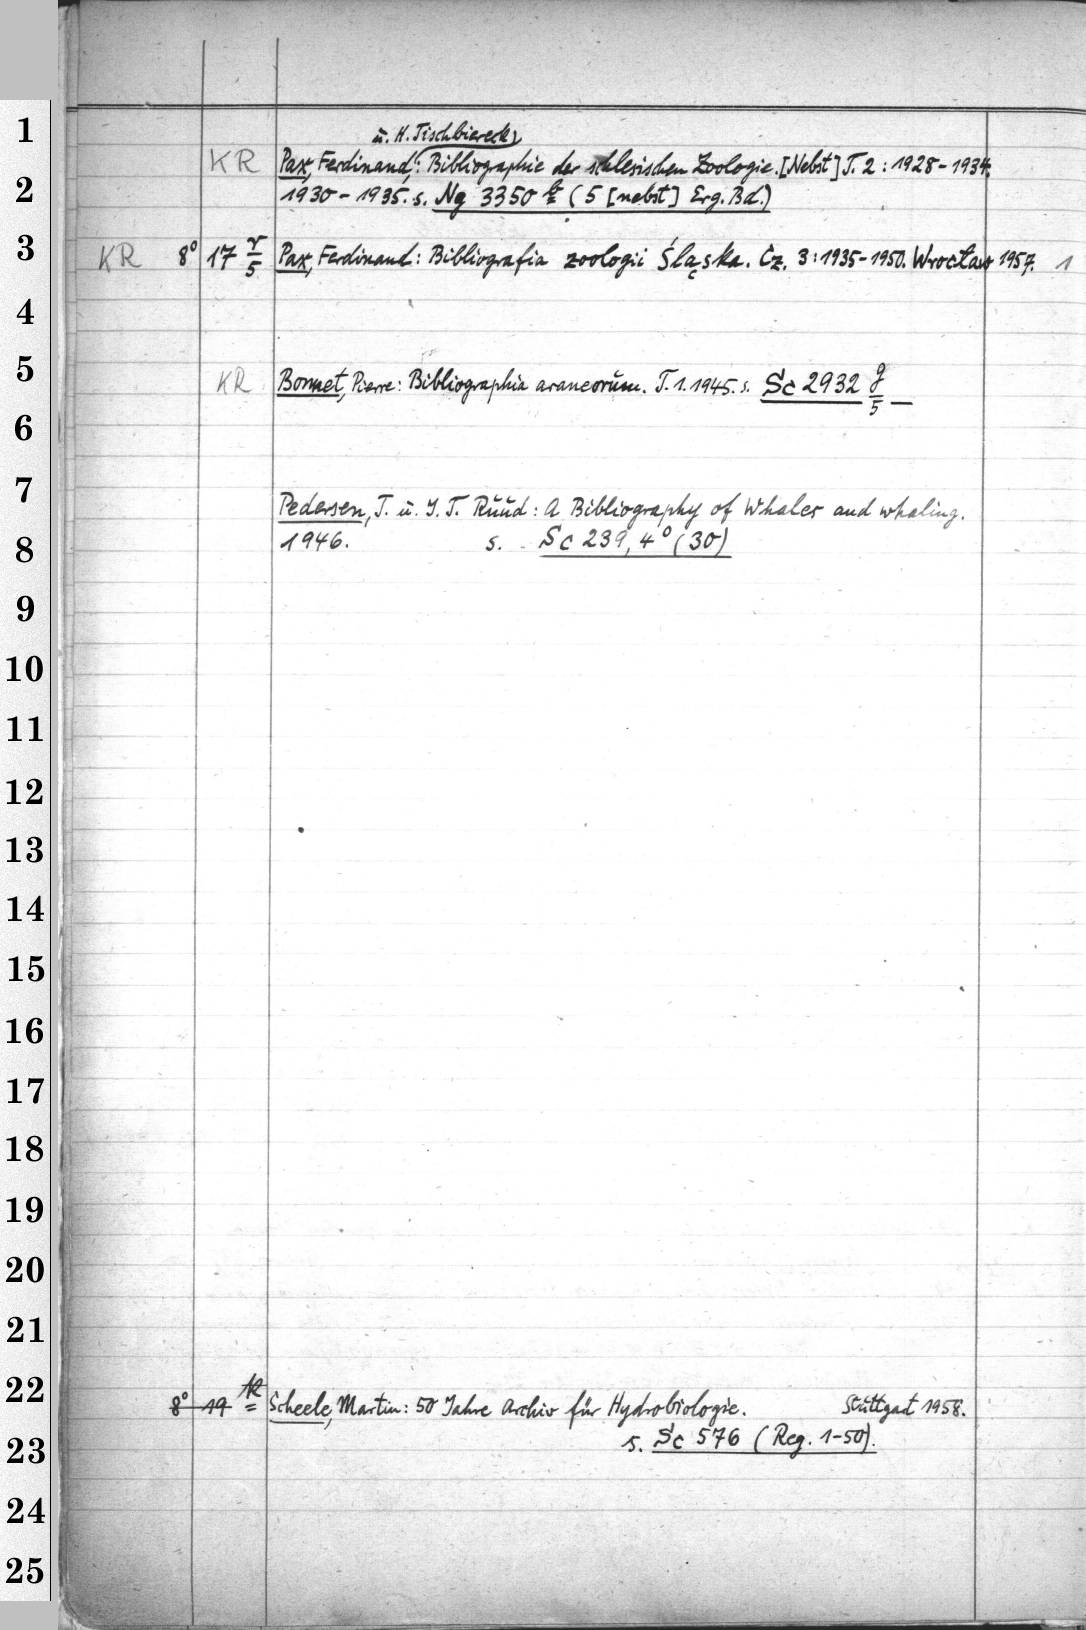 1
ü. H. Tischbiereck
KR Pax, Ferdinand: Bibliographie der schlesischen Zoologie. [Nebst] T. 2: 1928-1934.
2 1930-1935. s. Ng 3350 (5 [nebst] Erg. Bd.)
3 KR 8° 17 r/5 Pax, Ferdinand: Bibliografia zoologii Śląska. Cz. 3: 1935-1950. Wrocław 1957. 1
4
5 KR Bonnet, Pierre: Bibliographia araneorŭm. T. 1. 1945. s. Sc 2932 g/5 —
6
7 Pedersen, T. ŭ. J. T. Rŭŭd: A Bibliography of Whales and whaling.
8 1946. s. Sc 239, 4° (30)
9
10
11
12
13
14
15
16
17
18
19
20
21
22 8° 19 Scheele, Martin: 50 Jahre Archiv für Hydrobiologie. Stŭttgart 1958.
23 s. Sc 576 (Reg. 1-50).
24
25